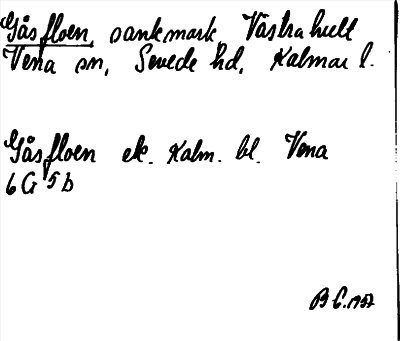 Gåsfloen, sankmark, Västra hult
Vena sn, Sevede hd, Kalmar l.
Gåsfloen ek. Kalm. bl. Vena
6G5b